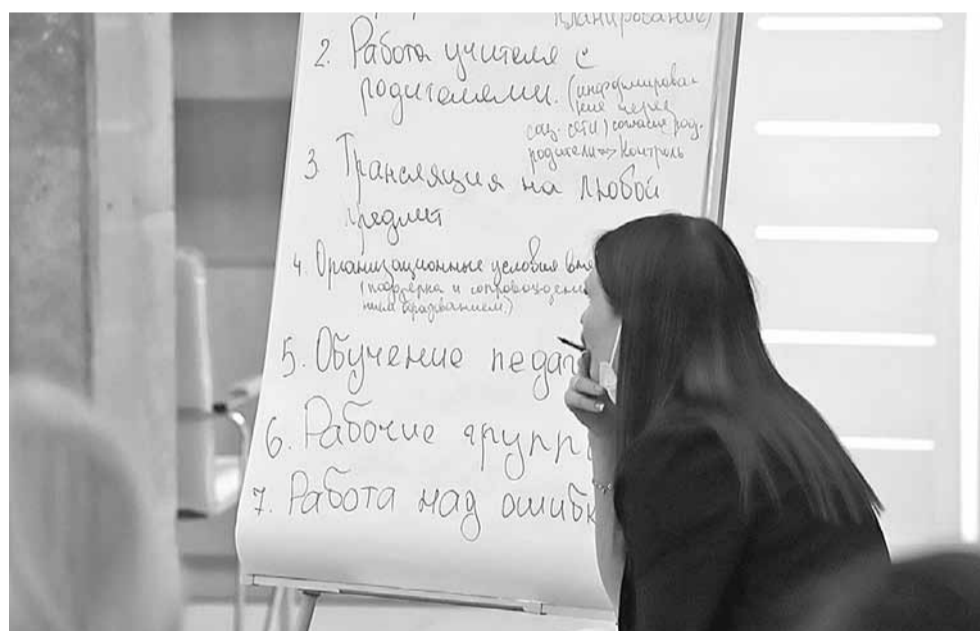 планирование)
2. Работа учителя с
родителями. (информирова-
ние через
соц. сети) согласие род.
родители => контроль
3 Трансляция на любой
предмет
4. Организационные условия
(поддержка и
ным образованием.)
5. Обучение педаг
6. Рабочие групп
7. Работа над ошибк